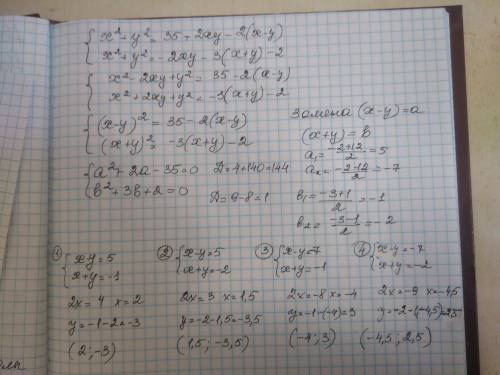 { x² + y² = 35 + 2xy - 2(x-y)
x² + y² = -2xy - 3(x+y) - 2
{ x² - 2xy + y² = 35 - 2(x-y)
x² + 2xy + y² = -3(x+y) - 2
{ (x-y)² = 35 - 2(x-y)
(x+y)² = -3(x+y) - 2
{ a² + 2a - 35 = 0 D = 4 + 140 = 144
b² + 3b + 2 = 0 D = 9 - 8 = 1
Замена (x-y) = a
(x+y) = b
a₁ = (-2+12)/2 = 5
a₂ = (-2-12)/2 = -7
b₁ = (-3+1)/2 = -1
b₂ = (-3-1)/2 = -2
① { x-y = 5
x+y = -1
2x = 4 x = 2
y = -1 - 2 = -3
(2; -3)
② { x-y = 5
x+y = -2
2x = 3 x = 1,5
y = -2 - 1,5 = -3,5
(1,5; -3,5)
③ { x-y = 7
x+y = -1
2x = -8 x = -4
y = -1 - (-4) = 3
(-4; 3)
④ { x-y = -7
x+y = -2
2x = -9 x = -4,5
y = -2 - (-4,5) = 2,5
(-4,5; 2,5)